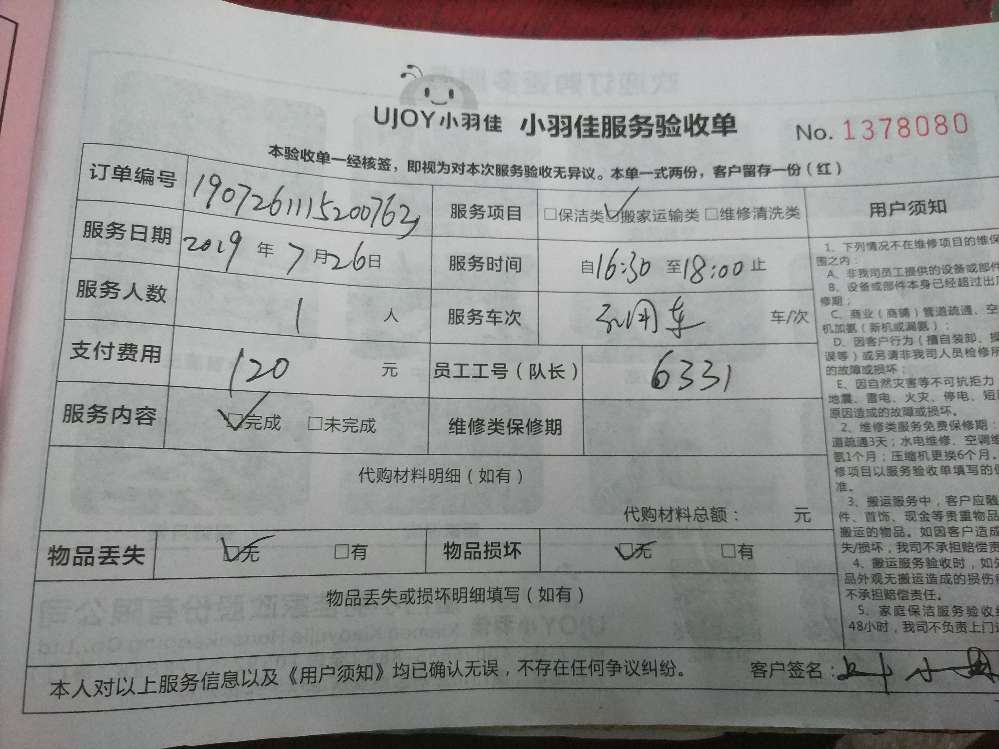 UJOY小羽佳 小羽佳服务验收单 No. 1378080
本验收单一经核签，即视为对本次服务验收无异议。本单一式两份，客户留存一份（红）
订单编号 服务项目 □保洁类 ☑搬家运输类 □维修清洗类
服务日期 2019 年 7 月 26 日 服务时间 自 16:30 至 18:00 止
服务人数 1 人 服务车次 车/次
支付费用 120 元 员工工号（队长） 6331
服务内容 ☑完成 □未完成 维修类保修期
代购材料明细（如有）
代购材料总额： 元
物品丢失 ☑无 □有 物品损坏 ☑无 □有
物品丢失或损坏明细填写（如有）
本人对以上服务信息以及《用户须知》均已确认无误，不存在任何争议纠纷。 客户签名：
用户须知
1、下列情况不在维修项目的维保
围之内：
A、非我司员工提供的设备或部件
B、设备或部件本身已经超过出
修期；
C、商业（商铺）管道疏通、空
机加氨（新机或漏氨）；
D、因客户行为（擅自装卸、操
误等）或另请非我司人员检修所
的故障或损坏；
E、因自然灾害等不可抗拒力
地震、雷电、火灾、停电、短
原因造成的故障或损坏。
2、维修类服务免费保修期：
道疏通3天；水电维修、空调维
氨1个月；压缩机更换6个月。
修项目以服务验收单填写的保
准。
3、搬运服务中，客户应随
件、首饰、现金等贵重物品
搬运的物品。如因客户造成
失/损坏，我司不承担赔偿责
4、搬运服务验收时，如外
品外观无搬运造成的损伤
不承担赔偿责任。
5、家庭保洁服务验收
48小时，我司不负责上门